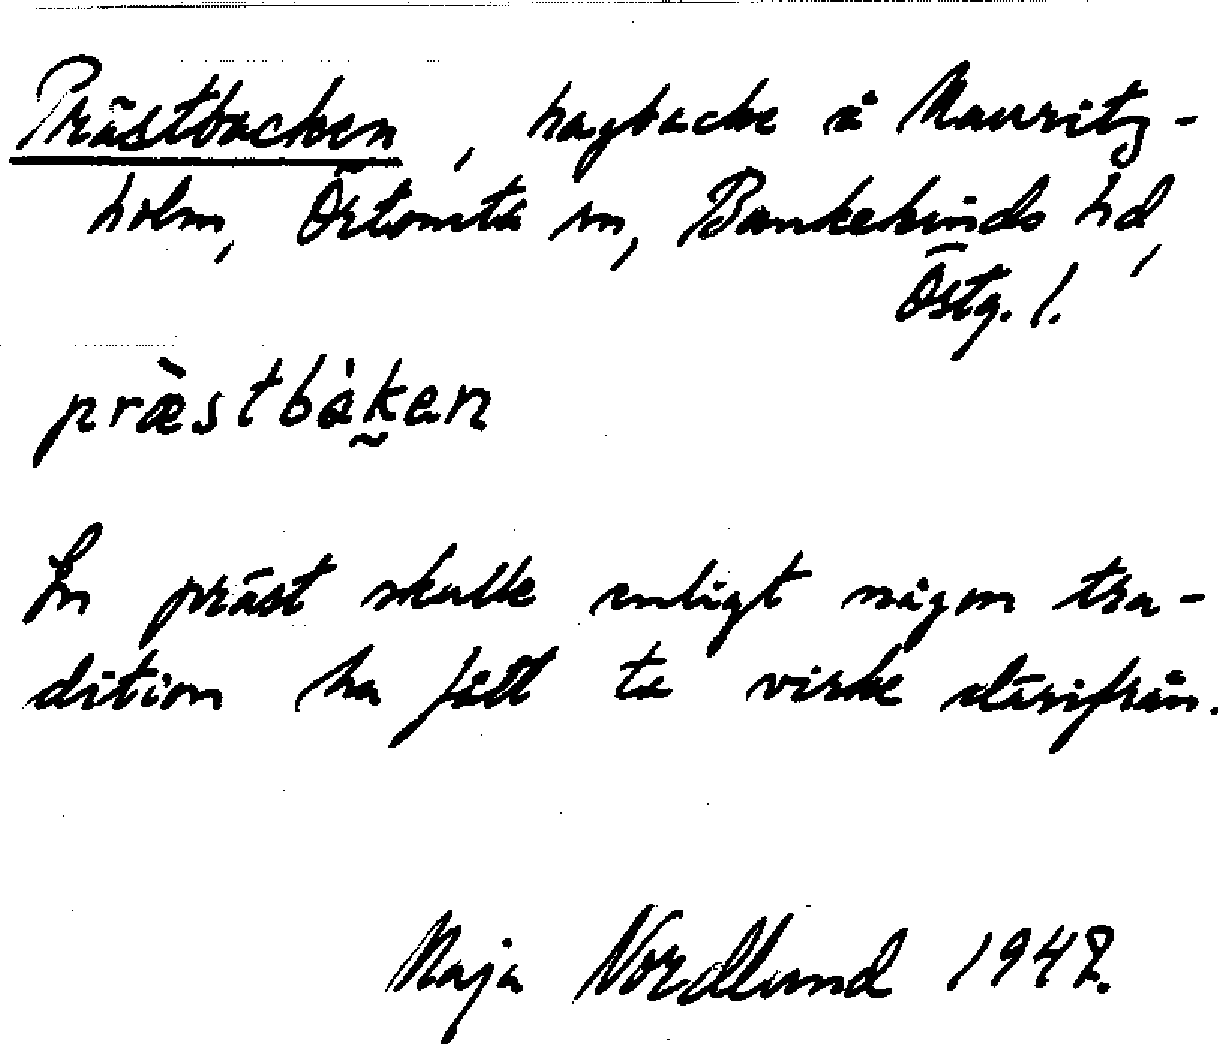 Prästbacken, hagbacke å Mauritz-
holm, Örtomta sn, Bankekinds hd,
Östg. l.
præ̀stbàk̰en
En präst skulle enligt någon tra-
dition ha fått ta virke därifrån.
Maja Nordlund 1947.